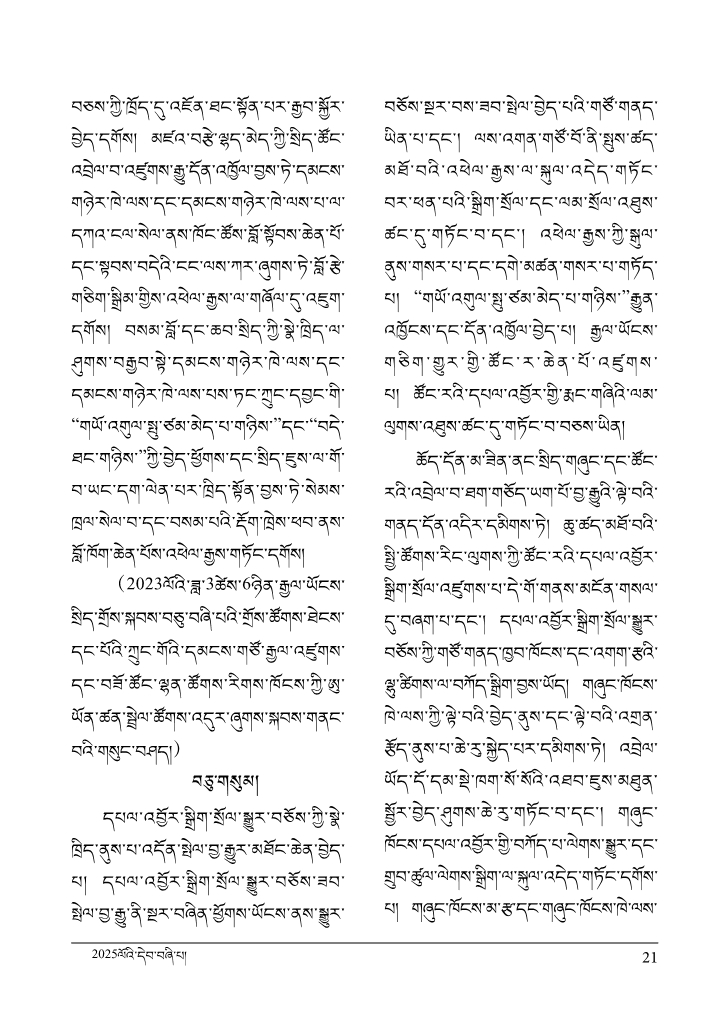 བཅས་ཀྱི་ཁྲོད་དུ་འཇོན་ཐང་སྟོན་པར་རྒྱབ་སྐྱོར་
བྱེད་དགོས། མཛའ་བརྩེ་ལྷད་མེད་ཀྱི་སྲིད་ཚོང་
འབྲེལ་བ་འཛུགས་རྒྱུ་དོན་འཁྱོལ་བྱས་ཏེ་དམངས་
གཉེར་ཁེ་ལས་དང་དམངས་གཉེར་ཁེ་ལས་པ་ལ་
དཀའ་ངལ་སེལ་ནས་ཁོང་ཚོས་བློ་སྟོབས་ཆེན་པོ་
དང་སྟབས་བདེའི་ངང་ལས་ཀར་ཞུགས་ཏེ་བློ་རྩེ་
གཅིག་སྒྲིམ་གྱིས་འཕེལ་རྒྱས་ལ་གཞོལ་དུ་འཇུག་
དགོས། བསམ་བློ་དང་ཆབ་སྲིད་ཀྱི་སྣེ་ཁྲིད་ལ་
ཤུགས་བརྒྱབ་སྟེ་དམངས་གཉེར་ཁེ་ལས་དང་
དམངས་གཉེར་ཁེ་ལས་པས་ཏང་ཀྲུང་དབྱང་གི་
“གཡོ་འགུལ་སྤུ་ཙམ་མེད་པ་གཉིས་”དང་“བདེ་
ཐང་གཉིས་”ཀྱི་བྱེད་ཕྱོགས་དང་སྲིད་ཇུས་ལ་གོ་
བ་ཡང་དག་ལེན་པར་ཁྲིད་སྟོན་བྱས་ཏེ་སེམས་
ཁྲལ་སེལ་བ་དང་བསམ་པའི་རྡོག་ཁྲེས་ཕབ་ནས་
བློ་ཁོག་ཆེན་པོས་འཕེལ་རྒྱས་གཏོང་དགོས།
(2023ལོའི་ཟླ་3ཚེས་6ཉིན་རྒྱལ་ཡོངས་
སྲིད་གྲོས་སྐབས་བཅུ་བཞི་པའི་གྲོས་ཚོགས་ཐེངས་
དང་པོའི་ཀྲུང་གོའི་དམངས་གཙོ་རྒྱལ་འཛུགས་
དང་བཟོ་ཚོང་ལྷན་ཚོགས་རིགས་ཁོངས་ཀྱི་ཨུ་
ཡོན་ཚན་སྦྲེལ་ཚོགས་འདུར་ཞུགས་སྐབས་གནང་
བའི་གསུང་བཤད།)
བཅུ་གསུམ།
དཔལ་འབྱོར་སྒྲིག་སྲོལ་སྒྱུར་བཅོས་ཀྱི་སྣེ་
ཁྲིད་ནུས་པ་འདོན་སྤེལ་བྱ་རྒྱུར་མཐོང་ཆེན་བྱེད་
པ། དཔལ་འབྱོར་སྒྲིག་སྲོལ་སྒྱུར་བཅོས་ཟབ་
སྤེལ་བྱ་རྒྱུ་ནི་སྔར་བཞིན་ཕྱོགས་ཡོངས་ནས་སྒྱུར་
བཅོས་སྔར་བས་ཟབ་སྤེལ་བྱེད་པའི་གཙོ་གནད་
ཡིན་པ་དང་། ལས་འགན་གཙོ་བོ་ནི་སྤུས་ཚད་
མཐོ་བའི་འཕེལ་རྒྱས་ལ་སྐུལ་འདེད་གཏོང་
བར་ཕན་པའི་སྒྲིག་སྲོལ་དང་ལམ་སྲོལ་འཐུས་
ཚང་དུ་གཏོང་བ་དང་། འཕེལ་རྒྱས་ཀྱི་སྒུལ་
ནུས་གསར་པ་དང་དགེ་མཚན་གསར་པ་གཏོད་
པ། “གཡོ་འགུལ་སྤུ་ཙམ་མེད་པ་གཉིས་”རྒྱུན་
འཁྱོངས་དང་དོན་འཁྱོལ་བྱེད་པ། རྒྱལ་ཡོངས་
གཅིག་གྱུར་གྱི་ཚོང་ར་ཆེན་པོ་འཛུགས་
པ། ཚོང་རའི་དཔལ་འབྱོར་གྱི་རྨང་གཞིའི་ལམ་
ལུགས་འཐུས་ཚང་དུ་གཏོང་བ་བཅས་ཡིན།
ཚོད་དོན་མ་ཟིན་ནང་སྲིད་གཞུང་དང་ཚོང་
རའི་འབྲེལ་བ་ཐག་གཅོད་ཡག་པོ་བྱ་རྒྱུའི་ལྟེ་བའི་
གནད་དོན་འདིར་དམིགས་ཏེ། ཆུ་ཚད་མཐོ་བའི་
སྤྱི་ཚོགས་རིང་ལུགས་ཀྱི་ཚོང་རའི་དཔལ་འབྱོར་
སྒྲིག་སྲོལ་འཛུགས་པ་དེ་གོ་གནས་མངོན་གསལ་
དུ་བཞག་པ་དང་། དཔལ་འབྱོར་སྒྲིག་སྲོལ་སྒྱུར་
བཅོས་ཀྱི་གཙོ་གནད་ཁྱབ་ཁོངས་དང་འགག་རྩའི་
ལྷུ་ཚིགས་ལ་བཀོད་སྒྲིག་བྱས་ཡོད། གཞུང་ཁོངས་
ཁེ་ལས་ཀྱི་ལྟེ་བའི་བྱེད་ནུས་དང་ལྟེ་བའི་འགྲན་
རྩོད་ནུས་པ་ཆེ་རུ་སྐྱེད་པར་དམིགས་ཏེ། འབྲེལ་
ཡོད་དོ་དམ་སྡེ་ཁག་སོ་སོའི་འཐབ་ཇུས་མཐུན་
སྦྱོར་བྱེད་ཤུགས་ཆེ་རུ་གཏོང་བ་དང་། གཞུང་
ཁོངས་དཔལ་འབྱོར་གྱི་བཀོད་པ་ལེགས་སྒྱུར་དང་
གྲུབ་ཚུལ་ལེགས་སྒྲིག་ལ་སྐུལ་འདེད་གཏོང་དགོས་
པ། གཞུང་ཁོངས་མ་རྩ་དང་གཞུང་ཁོངས་ཁེ་ལས་
2025ལོའི་དེབ་བཞི་པ།
21